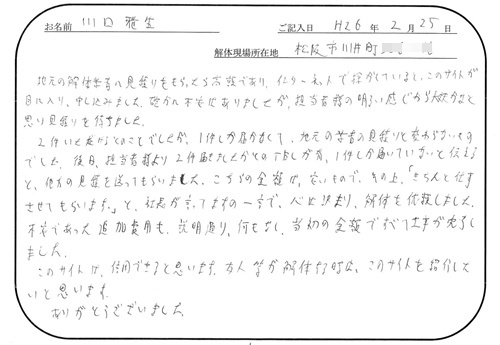 お名前 川口 ご記入日 H26年2月25日
解体現場所在地 松阪市川井町
地元の解体業者に見積りをもらったら高額であり、インターネットで探がしていると、このサイトが
目に入り、申し込みました。 不安はありましたが、担当者様の明るい感じから大丈夫かなと
思い見積りを待ちました。
2件いただけるとのことでしたが、1件しか届かなくて、地元の業者の見積りと変わらないもの
でした。後日、担当者様より2件届きましたかとのTELがあり、1件しか届いていないと伝える
と、他方の見積を送ってもらいました。こちらの金額は、安いもので、その上、「きちんと仕事
させてもらいます。」と、社長が言ってますの一言で、心は決まり、解体を依頼しました。
不安であった追加費用も、説明通り、何もなく、当初の金額ですべて工事が完了し
ました。
このサイトは、信用できると思います。友人等が解体する時は、このサイトを紹介した
いと思います。
ありがとうございました。